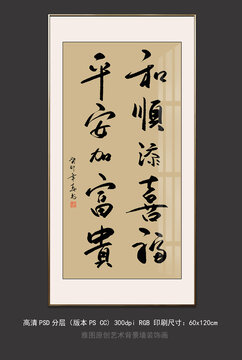 和順添喜福
平安加富貴
高清PSD分层（版本PS CC）300dpi RGB 印刷尺寸：60x120cm
雅图原创艺术背景墙装饰画